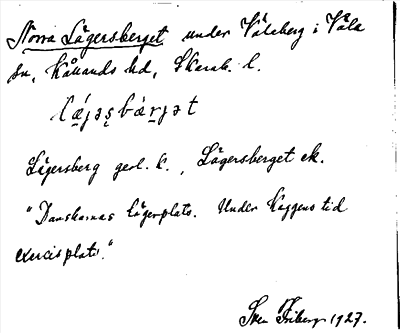 Norra Lägersberget under Vålberg i Våla
sn, Kållands hd, Skarab. l.
lǽjəs̨bàrjət
Lägersberg geol. k., Lägersberget ek.
"Danskarnas lägerplats. Under Kaggens tid
exercisplats."
Sven Friberg 1927.